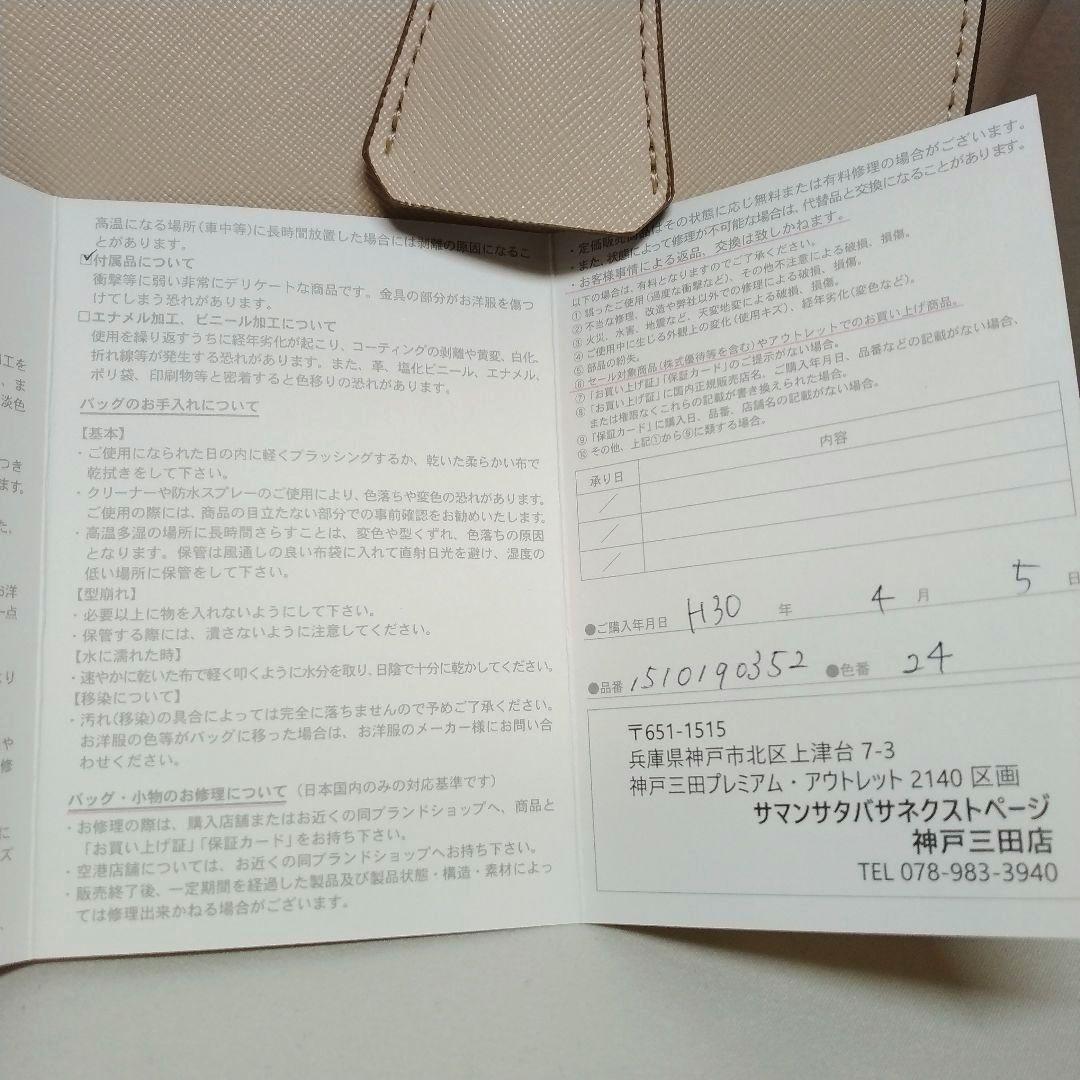 高温になる場所(車中等)に長時間放置した場合には剥離の原因になるこ
とがあります。
☑付属品について
衝撃等に弱い非常にデリケートな商品です。金具の部分がお洋服を傷つ
けてしまう恐れがあります。
□エナメル加工、ビニール加工について
使用を繰り返すうちに経年劣化が起こり、コーティングの剥離や黄変、白化、
折れ線等が発生する恐れがあります。また、革、塩化ビニール、エナメル、
ポリ袋、印刷物等と密着すると色移りの恐れがあります。
バッグのお手入れについて
【基本】
・ご使用になられた日の内に軽くブラッシングするか、乾いた柔らかい布で
乾拭きをして下さい。
・クリーナーや防水スプレーのご使用により、色落ちや変色の恐れがあります。
ご使用の際には、商品の目立たない部分での事前確認をお勧めいたします。
・高温多湿の場所に長時間さらすことは、変色や型くずれ、色落ちの原因
となります。保管は風通しの良い布袋に入れて直射日光を避け、湿度の
低い場所に保管をして下さい。
【型崩れ】
・必要以上に物を入れないようにして下さい。
・保管する際には、潰さないように注意してください。
【水に濡れた時】
・速やかに乾いた布で軽く叩くように水分を取り、日陰で十分に乾かしてください。
【移染について】
・汚れ(移染)の具合によっては完全に落ちませんので予めご了承ください。
お洋服の色等がバッグに移った場合は、お洋服のメーカー様にお問い合
わせください。
バッグ・小物のお修理について(日本国内のみの対応基準です)
・お修理の際は、購入店舗またはお近くの同ブランドショップへ、商品と
「お買い上げ証」「保証カード」をお持ち下さい。
・空港店舗については、お近くの同ブランドショップへお持ち下さい。
・販売終了後、一定期間を経過した製品及び製品状態・構造・素材によっ
ては修理出来かねる場合がございます。
・定価販売商品はその状態に応じ無料または有料修理の場合がございます。
・また、状態によって修理が不可能な場合は、代替品と交換になることがあります。
・お客様事情による返品、交換は致しかねます。
以下の場合は、有料となりますのでご了承ください。
①誤ったご使用(過度な衝撃など)、その他不注意による破損、損傷。
②不当な修理、改造や弊社以外での修理による破損、損傷。
③火災、水害、地震など、天変地変による破損、損傷。
④ご使用中に生じる外観上の変化(使用キズ)、経年劣化(変色など)。
⑤部品の紛失。
⑥セール対象商品(株式優待等を含む)やアウトレットでのお買い上げ商品。
⑦「お買い上げ証」「保証カード」のご提示がない場合。
⑧「お買い上げ証」に国内正規販売店名、ご購入年月日、品番などの記載がない場合、
または権限なくこれらの記載が書き換えられた場合。
⑨「保証カード」に購入日、品番、店舗名の記載がない場合。
⑩その他、上記①から⑨に類する場合。
承り日 内容
／
／
／
●ご購入年月日 H30 年 4 月 5 日
●品番 1510190352 ●色番 24
〒651-1515
兵庫県神戸市北区上津台 7-3
神戸三田プレミアム・アウトレット 2140 区画
サマンサタバサネクストページ
神戸三田店
TEL 078-983-3940